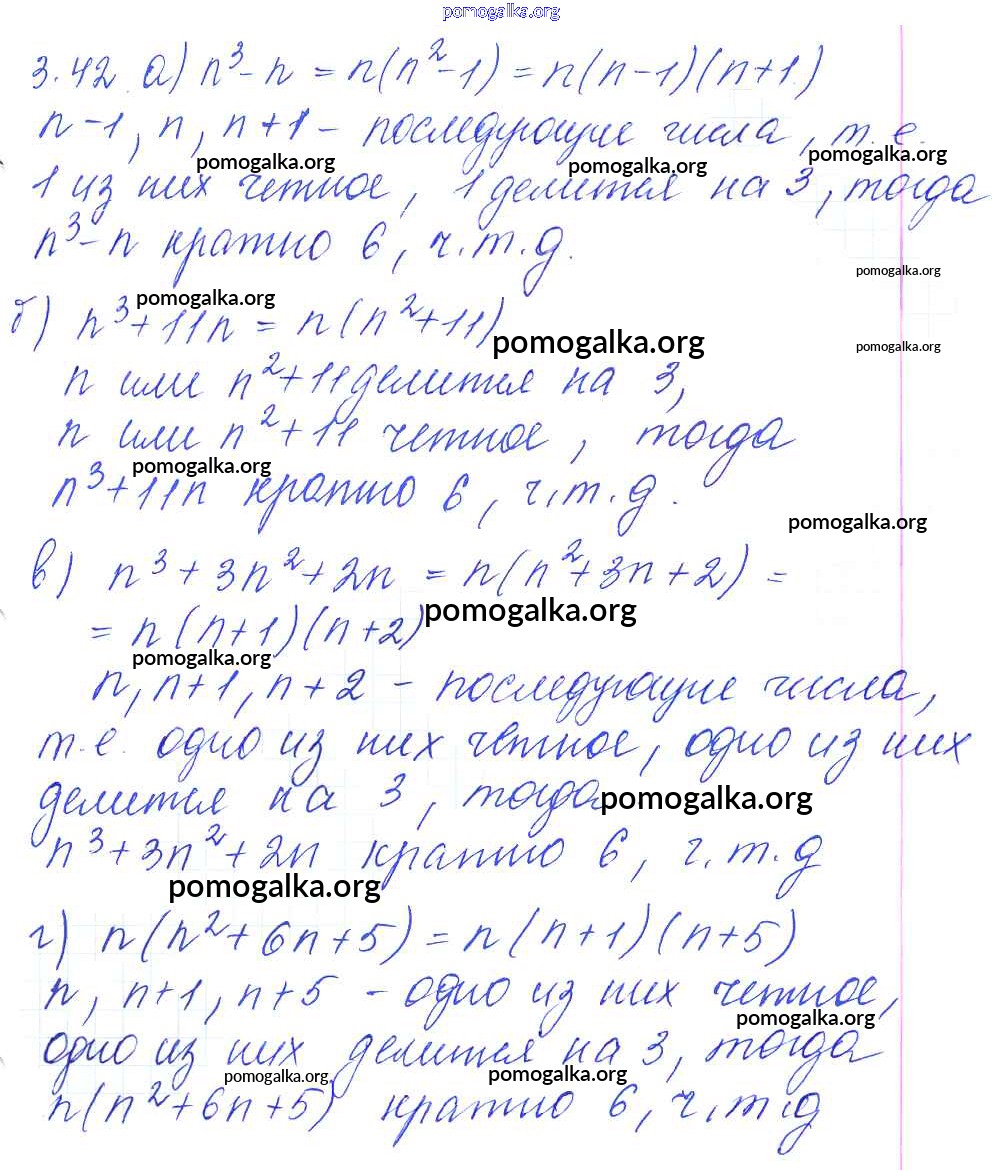 pomogalka.org
3.42 а) n³ - n = n(n² - 1) = n(n-1)(n+1)
n-1, n, n+1 - последующие числа, т.е.
pomogalka.org pomogalka.org pomogalka.org
1 из них четное, 1 делится на 3, тогда
n³ - n кратно 6, ч.т.д.
pomogalka.org
pomogalka.org
б) n³ + 11n = n(n² + 11)
pomogalka.org pomogalka.org
n или n² + 11 делится на 3,
n или n² + 11 четное, тогда
pomogalka.org
n³ + 11n кратно 6, ч.т.д.
pomogalka.org
в) n³ + 3n² + 2n = n(n² + 3n + 2) =
pomogalka.org
= n(n+1)(n+2)
pomogalka.org
n, n+1, n+2 - последующие числа,
т.е. одно из них четное, одно из них
делится на 3, тогда
pomogalka.org
n³ + 3n² + 2n кратно 6, ч.т.д
pomogalka.org
г) n(n² + 6n + 5) = n(n+1)(n+5)
n, n+1, n+5 - одно из них четное,
pomogalka.org
одно из них делится на 3, тогда
pomogalka.org pomogalka.org
n(n² + 6n + 5) кратно 6, ч.т.д